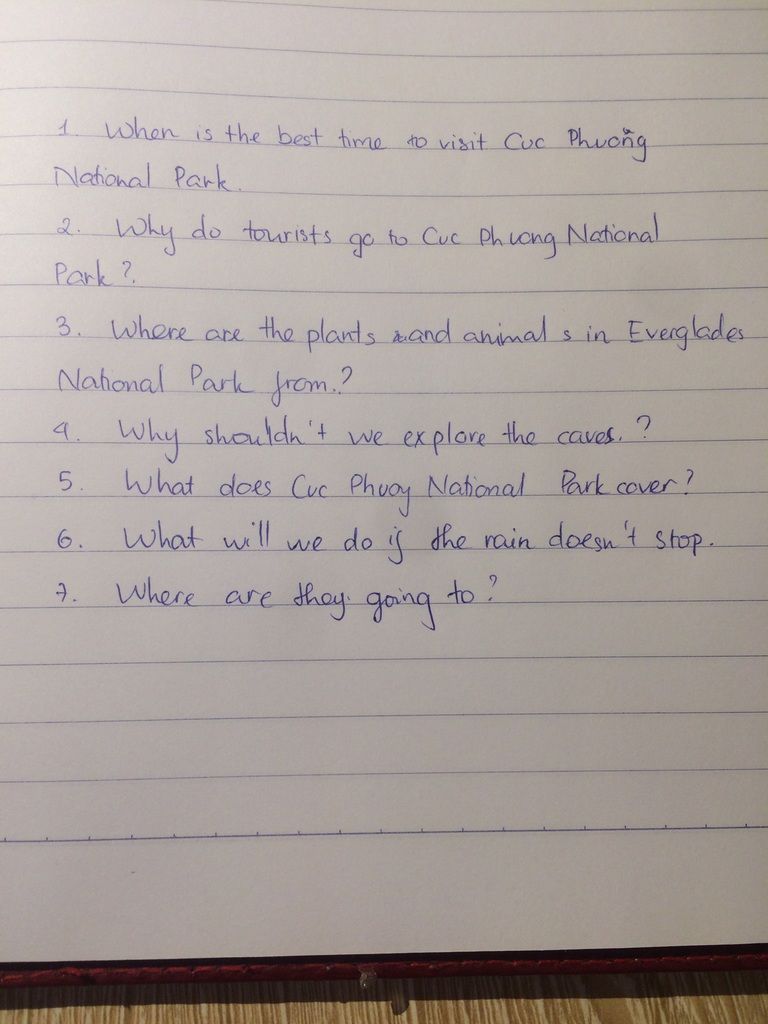 1. When is the best time to visit Cuc Phuong
National Park.
2. Why do tourists go to Cuc Phuong National
Park?
3. Where are the plants and animals in Everglades
National Park from.?
4. Why shouldn't we explore the caves.?
5. What does Cuc Phuog National Park cover?
6. What will we do if the rain doesn't stop.
7. Where are they going to?